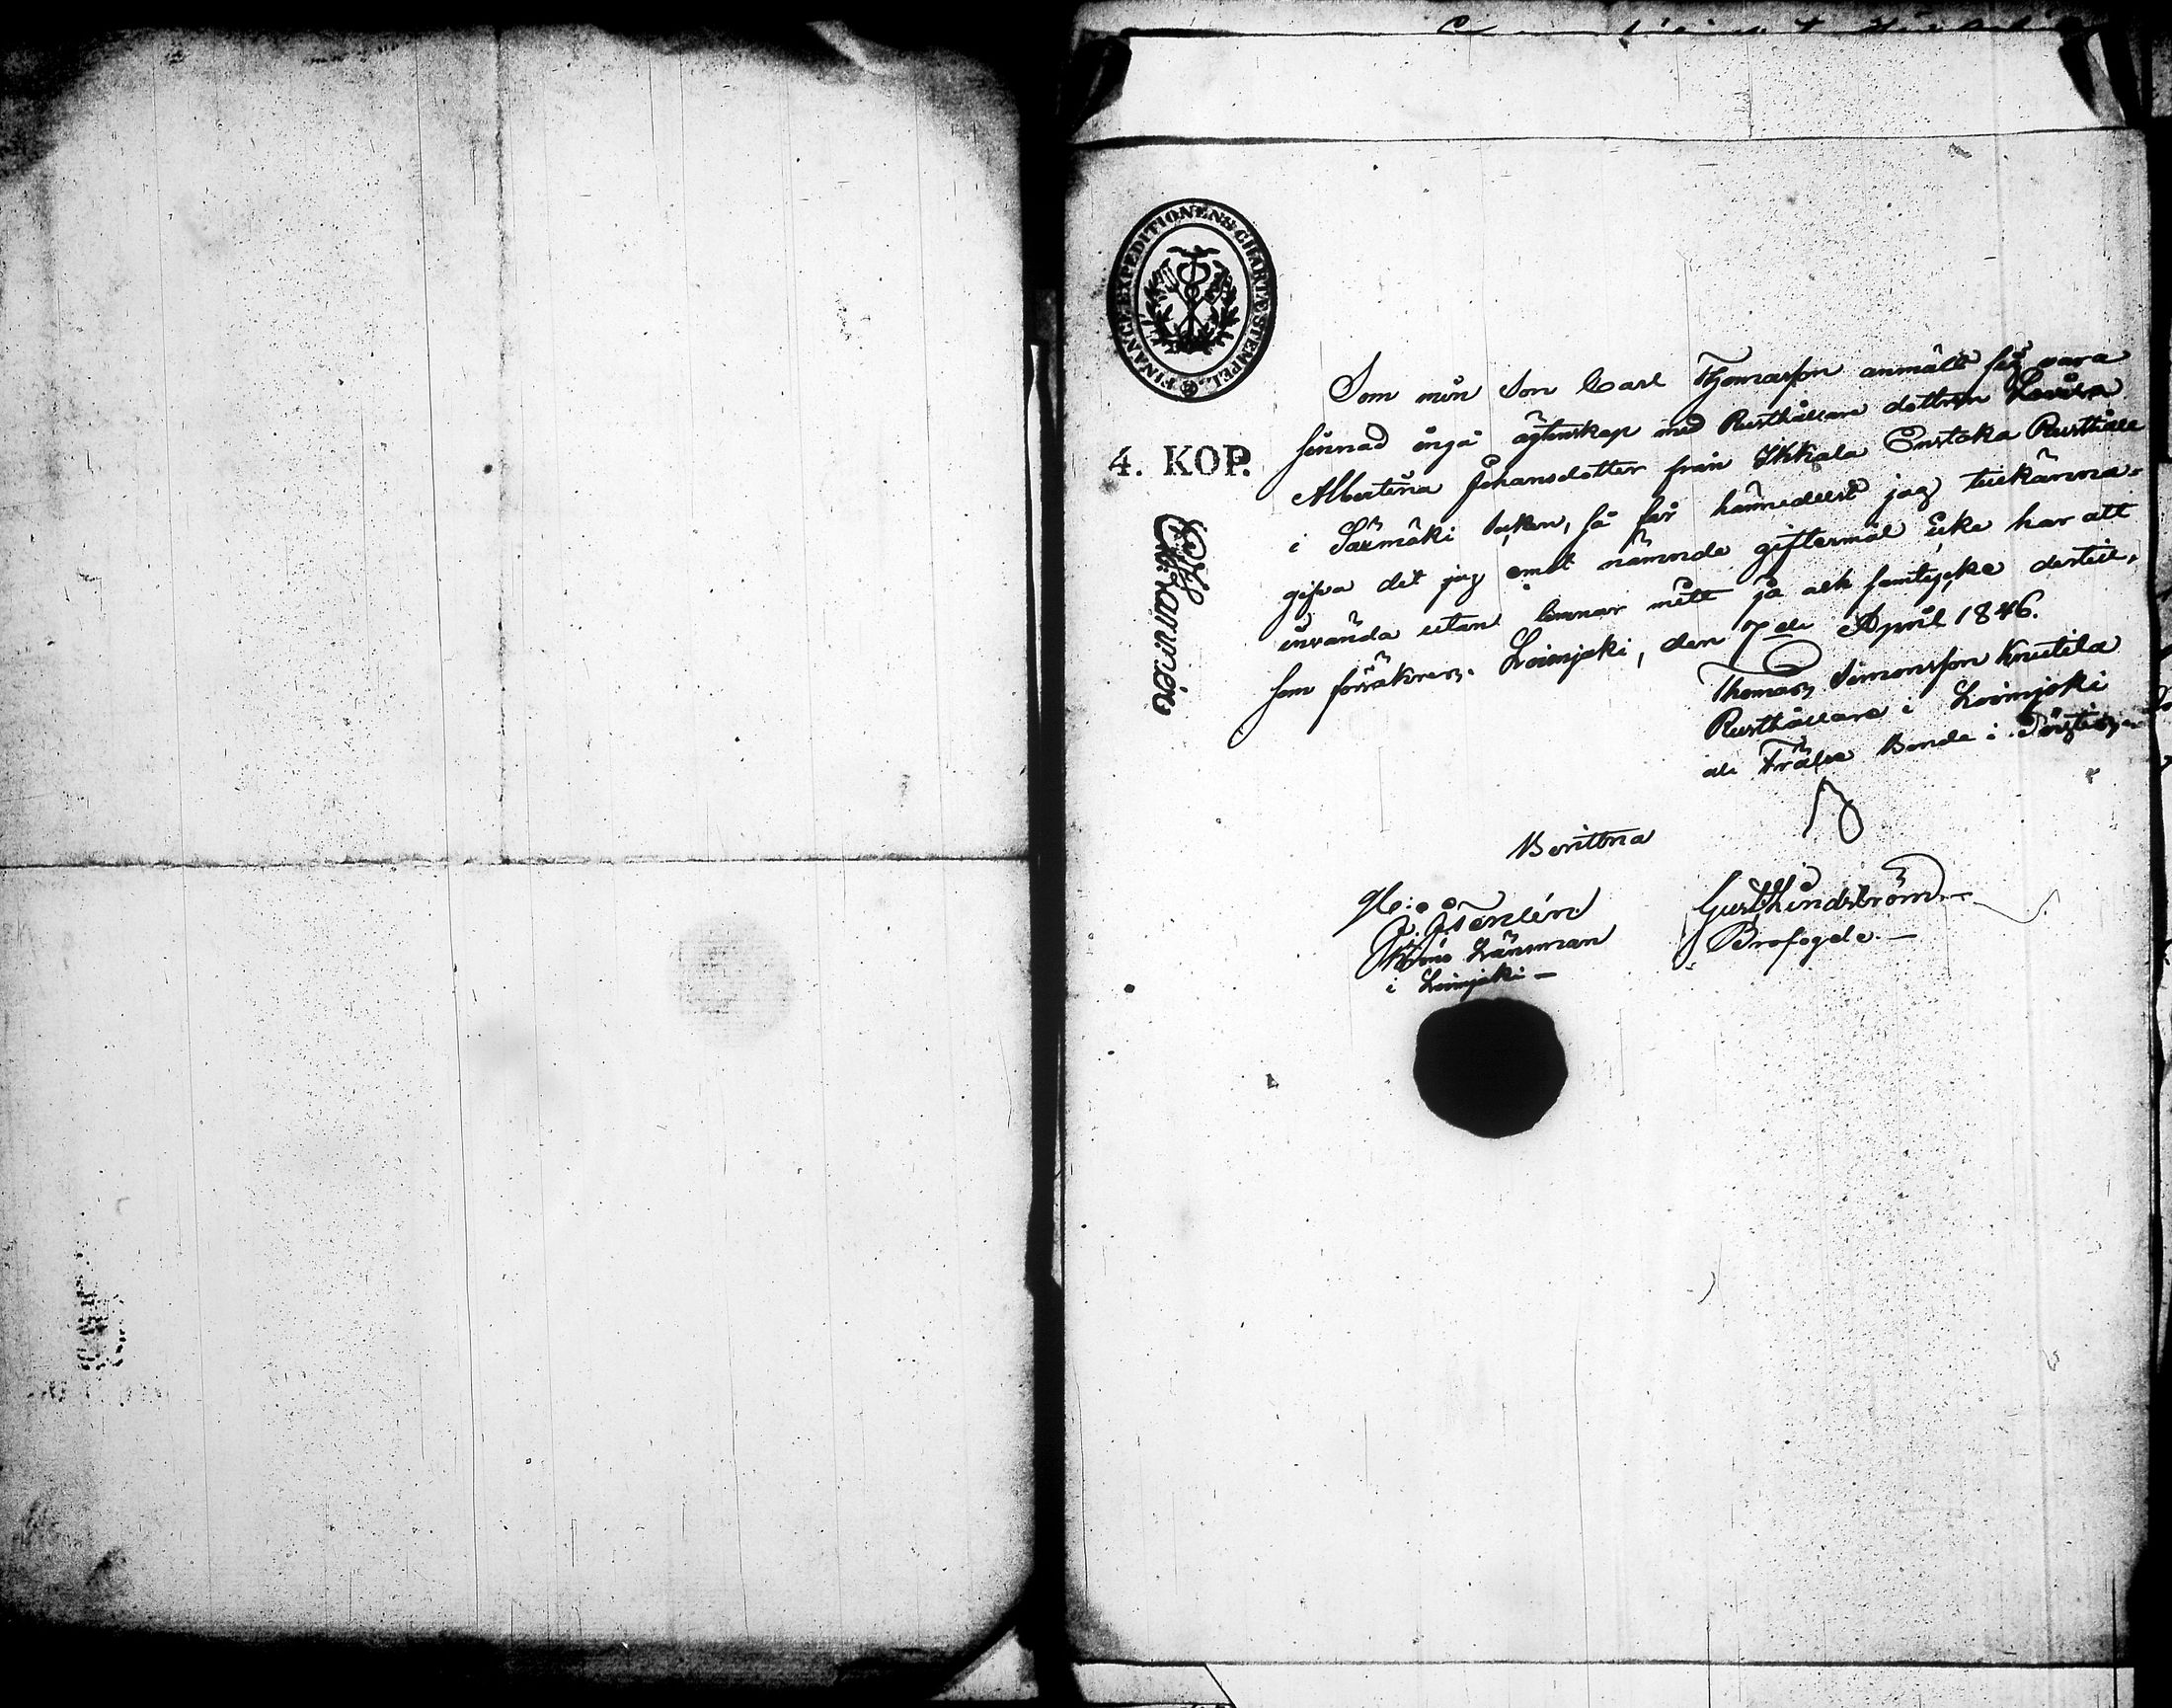 FINANCE EXPEDITIONENS CHARTÆ STEMPEL
4. KOP.
Som min Son Carl Thomasson anmält sig vara
sinnad ingå ägtenskap med Rusthållare dottren Lovisa
Albertina Johansdotter från Ikkala Enstaka Rusthåll
i Sarmäki Soken, så får härmedelst jag tillkänna-
gifva det jag emot nämnde giftermål icke har att
invända utan lemnar mitt ja och samtycke dertill,
som försäkras. Loimjoki, den 7de April 1846.
Thomas Simonsson Knutila
Rusthållare i Loimjoki
ock Frälse Bonde i
Bevittna
Krono Länsman
i Loimjoki —
Gust Lindström
Brofogde. —